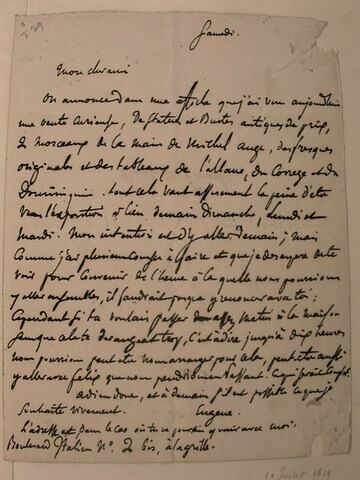 Samedi.
Mon cher ami
On annonce dans une affiche que j'ai vue aujourd'hui
une vente curieuse, de statues et Bustes antiques de prix,
de morceaux de la main de Michel Ange, des fresques
originales et des tableaux de l'albane, du Correge et du
Dominiquin. tout cela vaut assurement la peine d'etre
vu. l'exposition a lieu demain Dimanche, lundi et
Mardi. Mon intention est d'y aller demain; mais
comme j'ai plusieurs courses à faire et que je desespere de te
voir pour convenir de l'heure à la quelle nous pourrions
y aller ensemble, il faudrait que
Cependant si tu voulais passer demain matin à la maison
sans que cela te derangeat trop, c'est à dire jusqu'à dix heures
nous pourrions peut etre nous arranger pour cela, peut etre aussi
y aller avec felix que nous prendrions en passant. Ce qui serait
adieu donc, et à demain s'il est possible ce que je
Souhaite vivement. Eugene.
L'adresse est, dans le cas où tu ne pourrais y venir avec moi:
Boulevard Italien N°. 2 bis, à la grille.